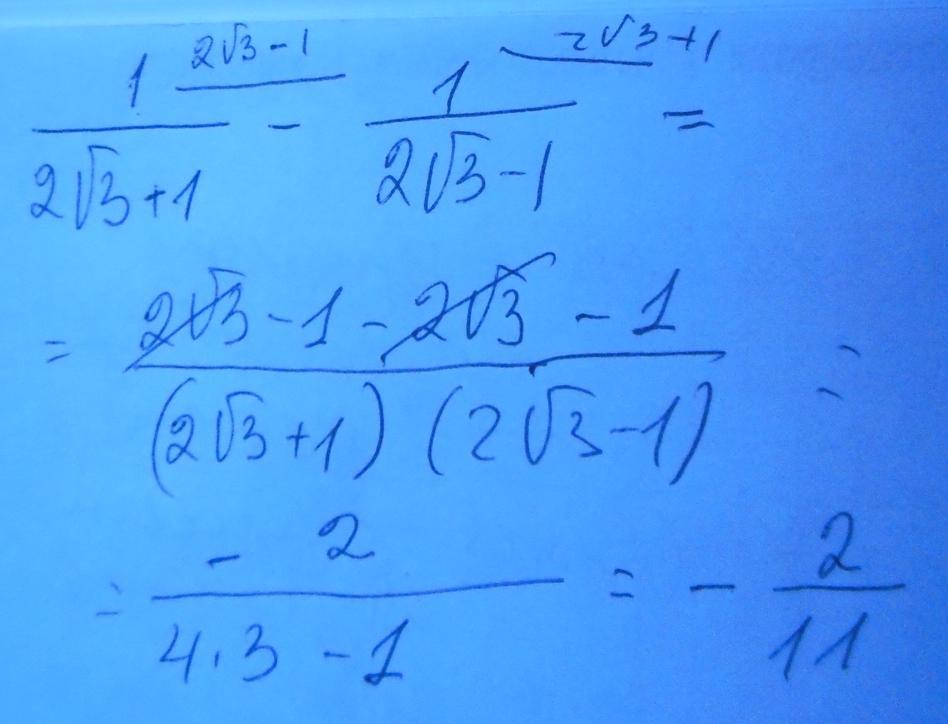 1 2√3-1 / 2√3+1 - 1 2√3+1 / 2√3-1 =
= 2√3-1-2√3-1 / (2√3+1)(2√3-1) =
= -2 / 4·3-1 = -2/11